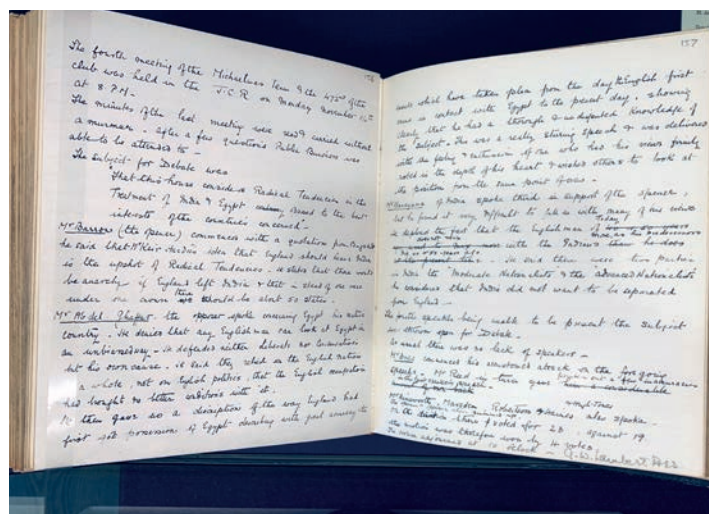 156
The fourth meeting of the Michaelmas Term & the 475th of the
club was held in the J.C.R. on Monday November
at 8 P.M.
The minutes of the last meeting were read & carried without
a murmur. After a few questions Public Business was
able to be attended to -
The subject for Debate was
"That this house considers Radical Tendencies in the
Treatment of India & Egypt to the best
interests of the countries concerned"
Mr Barrow (the opener) commenced with a quotation from
he said that Mr Keir Hardie's idea that England should leave India
is the upshot of Radical Tendencies. He states that there would
be anarchy if England left India & that instead of one
under one crown there would be about 50 states.
Mr Abdel Ghaffar the opposer spoke concerning Egypt his native
country. He denies that any Englishman can look at Egypt in
an unbiassed way. He defended neither Liberals nor Conservatives
but his own cause. He said they relied on the English nation
a whole, not on English politics, that the English occupation
had brought no better conditions with it.
He then gave us a description of the way England had
first got possession of Egypt dealing with
157
events which have taken place from the day the English first
came in contact with Egypt to the present day, showing
clearly that he had a thorough & undoubted knowledge of
the subject. This was a really stirring speech & was delivered
with the feeling & enthusiasm of one who has his views firmly
rooted in the depth of his heart & wishes others to look at
the position from the same point of view.
of India spoke third in support of the opener,
but he found it very difficult to fall in with many of his views
He deplored the fact that the Englishman of Today
with the Indians than he does
He said there were two parties
in India the "Moderate Nationalists" & the "Advanced Nationalists"
he considers that India did not want to be separated
from England.
The fourth speaker being unable to be present the subject
was thrown open for Debate.
As usual there was no lack of speakers -
Mr commenced his customary attack on the foregoing
speeches. Mr Read in turn gave
Marsden Robertson & Haines also spoke.
In the division there voted for 23. against 19
the motion was therefore won by 4 votes.
The House adjourned at 10 o'clock - G. W. Lambert